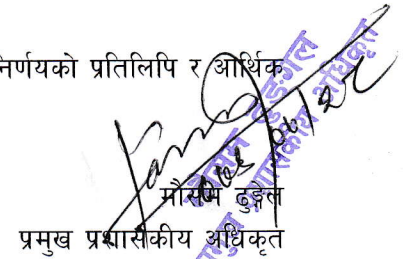 निर्णयको प्रतिलिपि र आर्थिक
मौसम ढुङ्गेल
प्रमुख प्रशासकीय अधिकृत